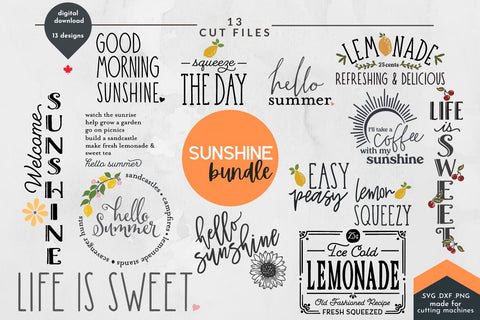 digital
download
13 designs
13
CUT FILES
GOOD
MORNING
SUNSHINE.
squeeze
THE DAY
hello
summer.
LEMONADE
25 cents
REFRESHING & DELICIOUS
Welcome
SUNSHINE
watch the sunrise
help grow a garden
go on picnics
build a sandcastle
make fresh lemonade &
sweet tea
hello summer
SUNSHINE
bundle
I'll take a
Coffee
with my
sunshine
LIFE
is
SWEET
EASY
peasy
lemon
SQUEEZY
sandcastles • campfires • lemonade stands • scavenger hunts
hello
Summer
hello
sunshine
25¢
Ice Cold
LEMONADE
Old Fashioned Recipe
FRESH SQUEEZED
LIFE IS SWEET.
SVG .DXF .PNG
made for
cutting machines